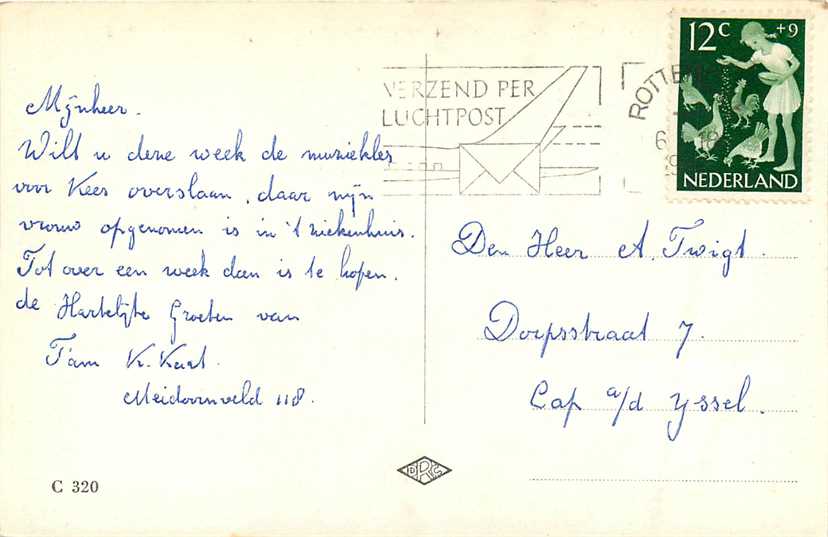 Mijnheer.
Wilt u deze week de muziekles
voor Kees overslaan, daar mijn
vrouw opgenomen is in 't ziekenhuis.
Tot over een week dan is te hopen.
de Hartelijke Groeten van
Fam K. Kaat.
Meidoornveld 118.
C 320
VERZEND PER
LUCHTPOST
ROTTE
6 18
12c +9
NEDERLAND
Den Heer A. Twigt.
Dorpsstraat 7.
Cap a/d Yssel.
DRC